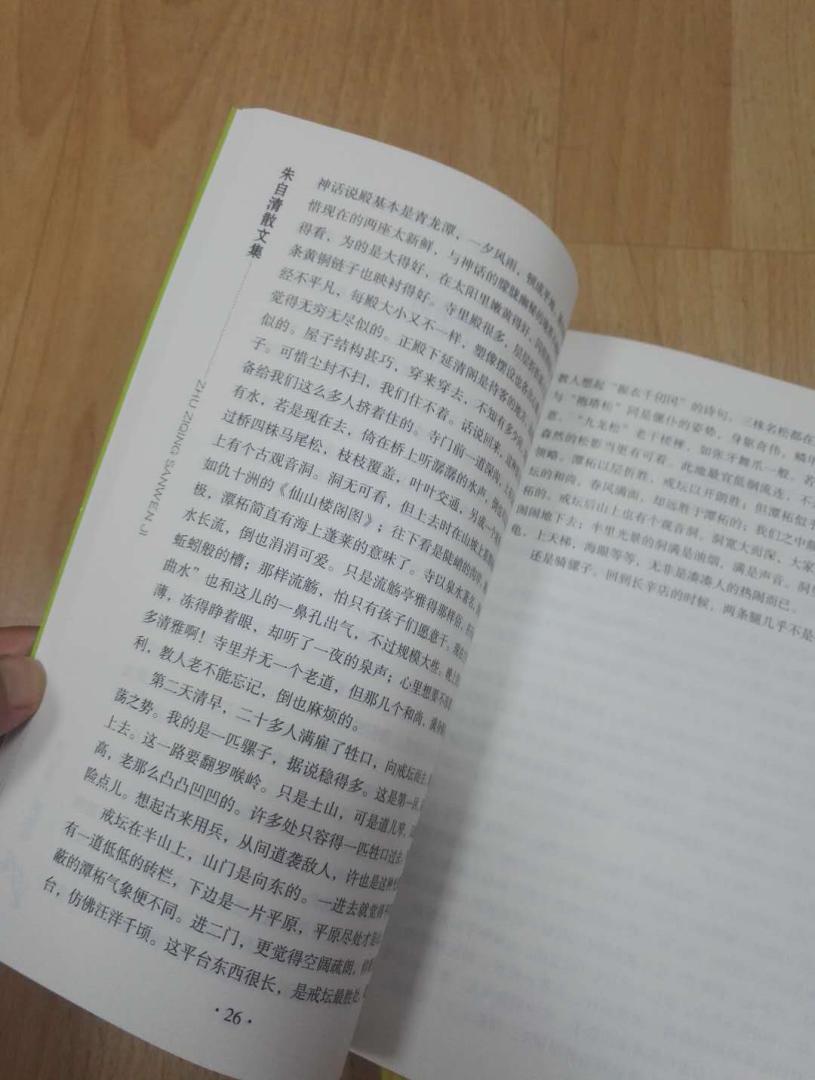 朱自清散文集
ZHU ZIQING SANWEN JI
神话说殿基本是青龙潭，一夕风雨，顿成平
惜现在的两座太新鲜，与神话的朦胧幽秘的
得看，为的是大得好，在太阳里嫩黄得好，闪
条黄铜链子也映衬得好。寺里殿很多，层层
经不平凡，每殿大小又不一样，塑像摆设各
觉得无穷无尽似的。正殿下延清阁是待客的地
似的。屋子结构甚巧，穿来穿去，不知有多少
子。可惜尘封不扫，我们住不着。话说回来，这
备给我们这么多人挤着住的。寺门前一道深沟，上
有水，若是现在去，倚在桥上听潺潺的水声，倒也
过桥四株马尾松，枝枝覆盖，叶叶交通，另成一个
上有个古观音洞。洞无可看，但上去时在山坡上看
如仇十洲的《仙山楼阁图》；往下看是陡峭的沟岸，
极，潭柘简直有海上蓬莱的意味了。寺以泉水著名，
水长流，倒也涓涓可爱。只是流觞亭雅得那样俗，在石
蚯蚓般的槽；那样流觞，怕只有孩子们愿意干。现在
曲水”也和这儿的一鼻孔出气，不过规模大些。晚上
薄，冻得睁着眼，却听了一夜的泉声；心里想要不
多清雅啊！寺里并无一个老道，但那几个和尚，满身
利，教人老不能忘记，倒也麻烦的。
第二天清早，二十多人满雇了牲口，向戒坛而去，
荡之势。我的是一匹骡子，据说稳得多。这是第一
上去。这一路要翻罗喉岭。只是土山，可是道儿窄，
高，老那么凸凸凹凹的。许多处只容得一匹牲口过去。
险点儿。想起古来用兵，从间道袭敌人，许也是这种
戒坛在半山上，山门是向东的。一进去就觉得平
有一道低低的砖栏，下边是一片平原，平原尽处才是
蔽的潭柘气象便不同。进二门，更觉得空阔疏朗，仰
台，仿佛汪洋千顷。这平台东西很长，是戒坛最胜处，
·26·
教人想起“振衣千仞冈”的诗句。三株名松都在
与“抱塔松”同是偃仆的姿势，身躯奇伟，鳞甲
意。“九龙松”老干槎桠，如张牙舞爪一般。若
森然的松影当更有可看。此地最宜低徊流连，不
领略。潭柘以层折胜，戒坛以开朗胜；但潭柘似乎
坛的和尚，春风满面，却远胜于潭柘的；我们之中
柘的。戒坛后山上也有个观音洞。洞宽大而深，大家
闹闹地下去；半里光景的洞满是油烟，满是声音。洞里
龟，上天梯，海眼等等，无非是凑凑人的热闹而已。
还是骑骡子。回到长辛店的时候，两条腿几乎不是